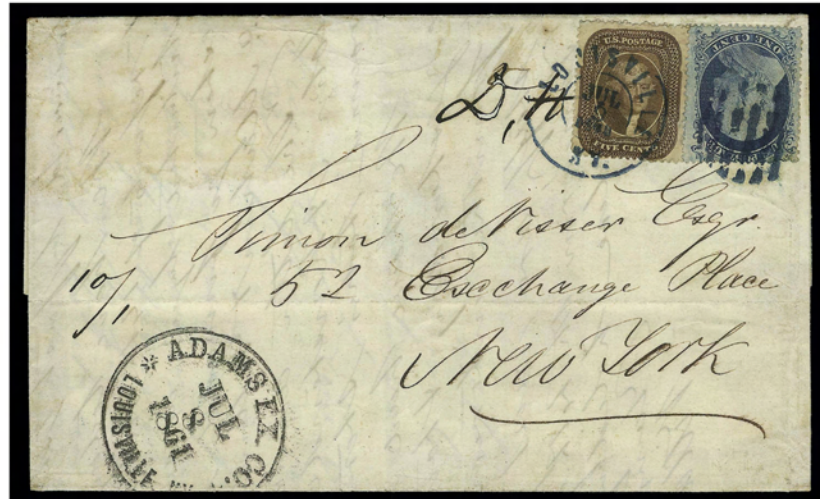 U.S. POSTAGE
FIVE CENTS
ONE CENT
LOUISVILLE
JUL
KY.
D, H
Simon deVisser Esqr.
10/1
52 Exchange Place
New York
ADAMS EX. CO.
JUL
8
1861
LOUISVILLE